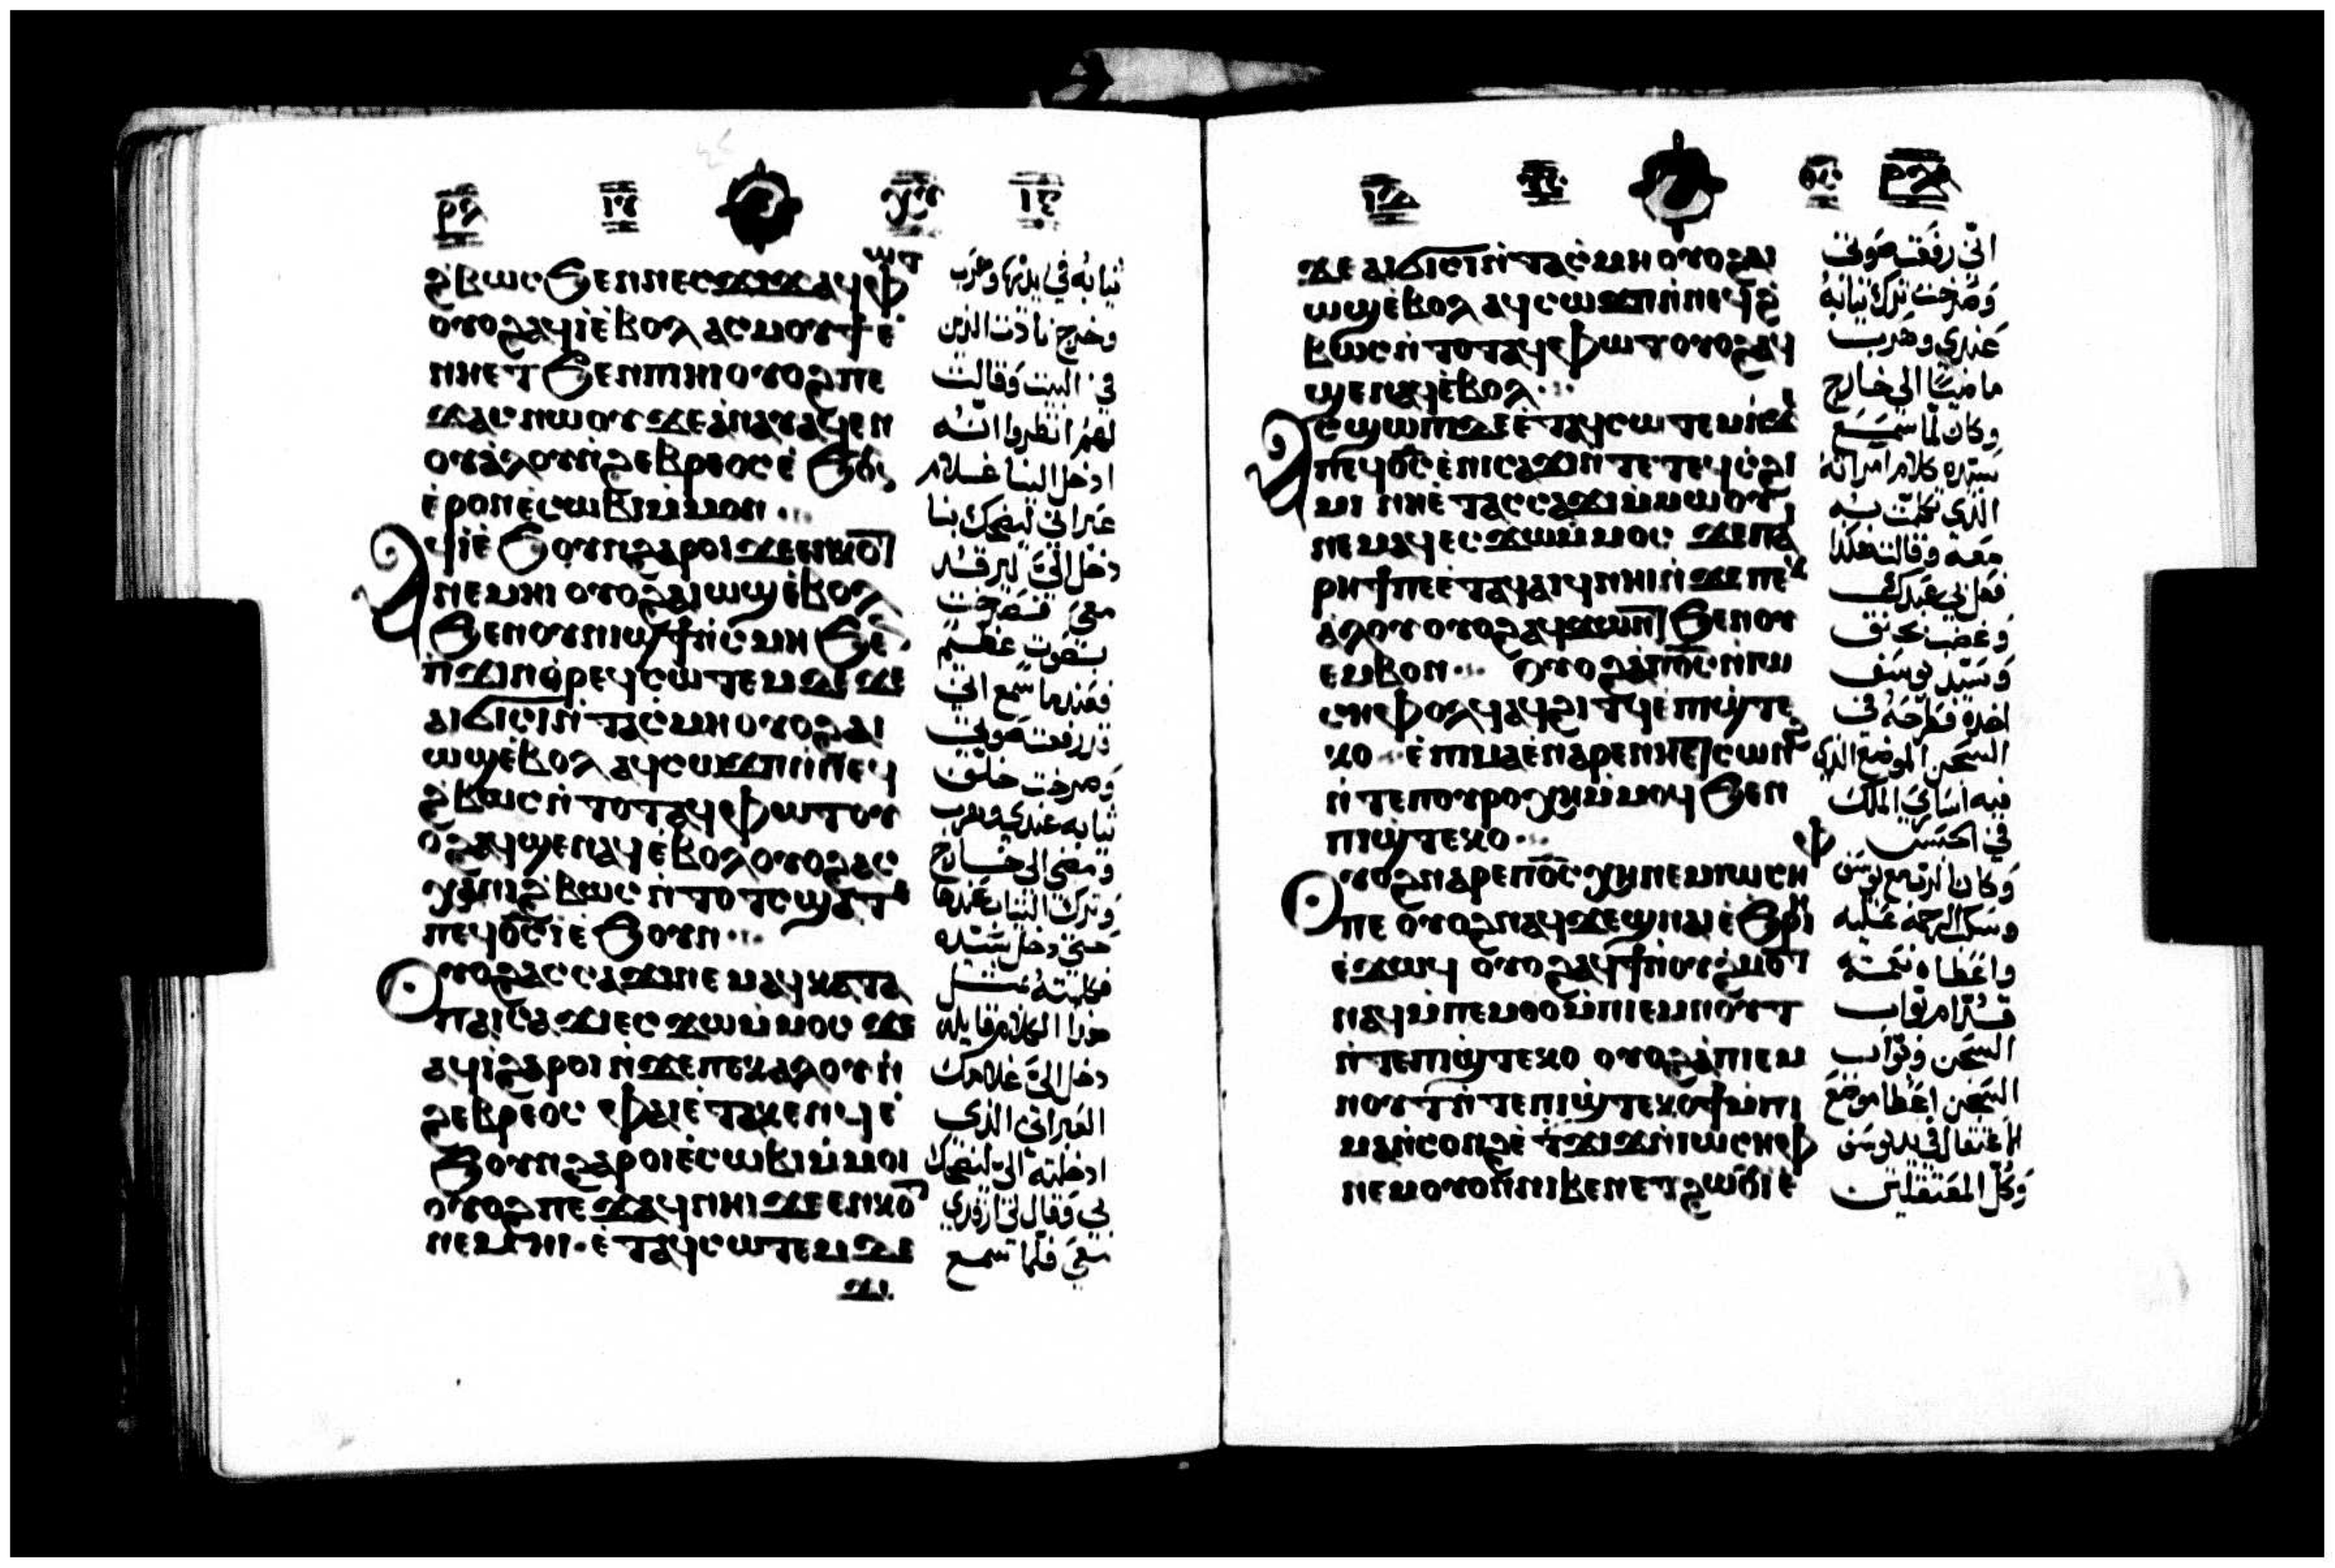 ϩⲃⲱⲥ ϧⲉⲛ ⲛⲉⲥϫⲓϫ ⲁϥⲫⲱⲧ
ⲟⲩⲟϩ ⲁϥⲓ̀ ⲉ̀ⲃⲟⲗ ⲁⲥⲙⲟⲩϯ ⲉ̀
ⲛⲏⲉⲧ ϧⲉⲛ ⲡⲓⲏⲓ ⲟⲩⲟϩ ⲡⲉ
ϫⲁⲥ ⲛⲱⲟⲩ ϫⲉ ⲁ̀ⲛⲁⲩ ⲁϥⲉⲛ
ⲟⲩⲁ̀ⲗⲟⲩ ⲛ̀ϩⲉⲃⲣⲉⲟⲥ ⲉ̀ϧⲟⲩ
ⲉ̀ⲣⲟⲛ ⲉ̀ⲥⲱⲃⲓ ⲙ̀ⲙⲟⲛ
Ⲁϥⲓ ⲉ̀ϧⲟⲩⲛ ϩⲁⲣⲟⲓ ϫⲉ ⲉⲛⲕⲟⲧ
ⲛⲉⲙⲏⲓ ⲟⲩⲟϩ ⲁⲓⲱϣ ⲉ̀ⲃⲟⲗ
ϧⲉⲛ ⲟⲩⲛⲓϣϯ ⲛ̀ⲥⲙⲏ ϧⲉ
ⲡ̀ϫⲓⲛⲑⲣⲉϥⲥⲱⲧⲉⲙ ⲇⲉ ϫⲉ
ⲁⲓϭⲓⲥⲓ ⲛ̀ⲧⲁⲥⲙⲏ ⲟⲩⲟϩ ⲁⲓ
ⲱϣ ⲉ̀ⲃⲟⲗ ⲁϥⲥⲱϫⲡ ⲛ̀ⲛⲉϥ
ϩⲃⲱⲥ ⲛ̀ⲧⲟⲧ ⲁϥⲫⲱⲧ ⲟⲩ
ⲟϩ ⲁϥϣⲉⲛⲁϥ ⲉ̀ⲃⲟⲗ ⲟⲩⲟϩ ⲁⲥ
ⲭⲁ ⲛⲓϩⲃⲱⲥ ⲛ̀ⲧⲟⲧⲥ ϣⲁⲧⲉ
ⲡⲉϥⲟ̅ⲥ̅ ⲓ̀ ⲉ̀ϧⲟⲩⲛ
Ⲟⲩⲟϩ ⲁⲥⲥⲁϫⲓ ⲛⲉⲙⲁϥ ⲕⲁⲧⲁ
ⲡⲁⲓⲥⲁϫⲓ ⲉⲥϫⲱ ⲙ̀ⲙⲟⲥ ϫⲉ
ⲁϥⲓ̀ ϩⲁⲣⲟⲓ ⲛ̀ϫⲉ ⲡⲉⲕⲁⲗⲟⲩ ⲛ̀
ϩⲉⲃⲣⲉⲟⲥ ⲫⲁⲓ ⲉ̀ⲧⲁⲕⲉⲛϥ ⲉ̀
ϧⲟⲩⲛ ϩⲁⲣⲟⲓ ⲉ̀ⲥⲱⲃⲓ ⲙ̀ⲙⲟⲓ
ⲟⲩⲟϩ ⲡⲉϫⲁϥ ⲛⲏⲓ ϫⲉ ⲉⲛⲕⲟⲧ
ⲛⲉⲙⲏⲓ · ⲉ̀ⲧⲁϥⲥⲱⲧⲉⲙ ⲇⲉ
ϫⲉ
ثيابه في يديها وهرب
وخرج نادت الذين
في البيت وقالت
لهم انظروا انه
ادخل الينا غلام
عبراني ليضحك بنا
دخل اليّ ليرقد
معي فصرخت
بصوت عظيم
فعندما سمع اني
قد رفعت صوتي
وصرخت خلف
ثيابه عندي وهرب
ومضى الى خارج
وتركت الثياب عندها
حتى دخل سيده
فكلمته مثل
هذا الكلام قايله
دخل اليّ غلامك
العبراني الذي
ادخلته اليّ ليضحك
بي وقال لي ارقدي
معي فلما سمع
ϫⲉ ⲁⲓϭⲓⲥⲓ ⲛ̀ⲧⲁⲥⲙⲏ ⲟⲩⲟϩ ⲁⲓ
ⲱϣ ⲉ̀ⲃⲟⲗ ⲁϥⲥⲱϫⲡ ⲛ̀ⲛⲉϥϩ̀
ⲃⲱⲥ ⲛ̀ⲧⲟⲧ ⲁϥⲫⲱⲧ ⲟⲩⲟϩ ⲁϥ
ϣⲉⲛⲁϥ ⲉ̀ⲃⲟⲗ
Ⲁⲥϣⲱⲡⲓ ⲇⲉ ⲉ̀ⲧⲁϥⲥⲱⲧⲉⲙ ⲛ̀ϫⲉ
ⲡⲉϥⲟ̅ⲥ̅ ⲉ̀ⲛⲓⲥⲁϫⲓ ⲛ̀ⲧⲉ ⲧⲉϥⲥϩⲓ
ⲙⲓ ⲛⲏ ⲉ̀ⲧⲁⲥⲥⲁϫⲓ ⲙ̀ⲙⲱⲟⲩ
ⲛⲉⲙⲁϥ ⲉⲥϫⲱ ⲙ̀ⲙⲟⲥ ϫⲉ ⲡⲁ
ⲣⲏϯ ⲡⲉ ⲉ̀ⲧⲁϥⲁⲓϥ ⲛⲏⲓ ⲛ̀ϫⲉ ⲡⲉⲕ
ⲁ̀ⲗⲟⲩ ⲟⲩⲟϩ ⲁϥϫⲱⲛⲧ ϧⲉⲛ ⲟⲩ
ⲉⲙⲃⲟⲛ Ⲟⲩⲟϩ ⲁ̀ ⲡⲟ̅ⲥ̅ ⲛ̀ⲓⲱ
ⲥⲏⲫ ⲟⲗϥ ⲁϥϩⲓⲧϥ ⲉ̀ⲡⲓϣⲧⲉ
ⲕⲟ ⲉ̀ⲡⲓⲙⲁ ⲉ̀ⲛⲁⲣⲉ ⲛⲏⲉⲧⲥⲱⲛϩ
ⲛ̀ⲧⲉ ⲡⲟⲩⲣⲟ ⲭⲏ ⲙ̀ⲙⲟϥ ϧⲉⲛ
ⲡⲓϣⲧⲉⲕⲟ
Ⲟⲩⲟϩ ⲛⲁⲣⲉ ⲡⲟ̅ⲥ̅ ⲭⲏ ⲛⲉⲙ ⲓⲱⲥⲏⲫ
ⲡⲉ ⲟⲩⲟϩ ⲛⲁϥϫⲉϣ ⲛⲁⲓ ⲉ̀ϧⲣⲏⲓ
ⲉ̀ϫⲱϥ ⲟⲩⲟϩ ⲁϥϯ ⲛⲟⲩϩⲙⲟⲧ
ⲛⲁϥ ⲙ̀ⲡⲉⲙⲑⲟ ⲙ̀ⲡⲓⲉⲙⲛⲟⲩⲧ
ⲛ̀ⲧⲉ ⲡⲓϣⲧⲉⲕⲟ ⲟⲩⲟϩ ⲁ̀ ⲡⲓⲉⲙ
ⲛⲟⲩⲧ ⲛ̀ⲧⲉ ⲡⲓϣⲧⲉⲕⲟ ϯ ⲙ̀ⲡⲓ
ⲙⲁⲛ̀ⲥⲟⲛϩ ⲉ̀ⲧϫⲓϫ ⲛ̀ⲓⲱⲥⲏⲫ
ⲛⲉⲙ ⲟⲩⲟⲛ ⲛⲓⲃⲉⲛ ⲉⲧϩⲱⲟⲩⲓ ⲉ̀
اني رفعت صوتي
وصرخت ترك ثيابه
عندي وهرب
ماضيًا الى خارج
وكان لما سمع
سيده كلام امراته
الذي تكلمت به
معه وقالت هكذا
فعل بي عبدك
وغضب بحنق
وسيد يوسف
اخذه فطرحه في
السجن الموضع الذي
فيه اسارى الملك
في الحبس
وكان الرب مع يوسف
وسكب الرحمة عليه
واعطاه نعمة
قدام بواب
السجن وبواب
السجن اعطا موضع
الاعتقال في يد يوسف
وكل المعتقلين